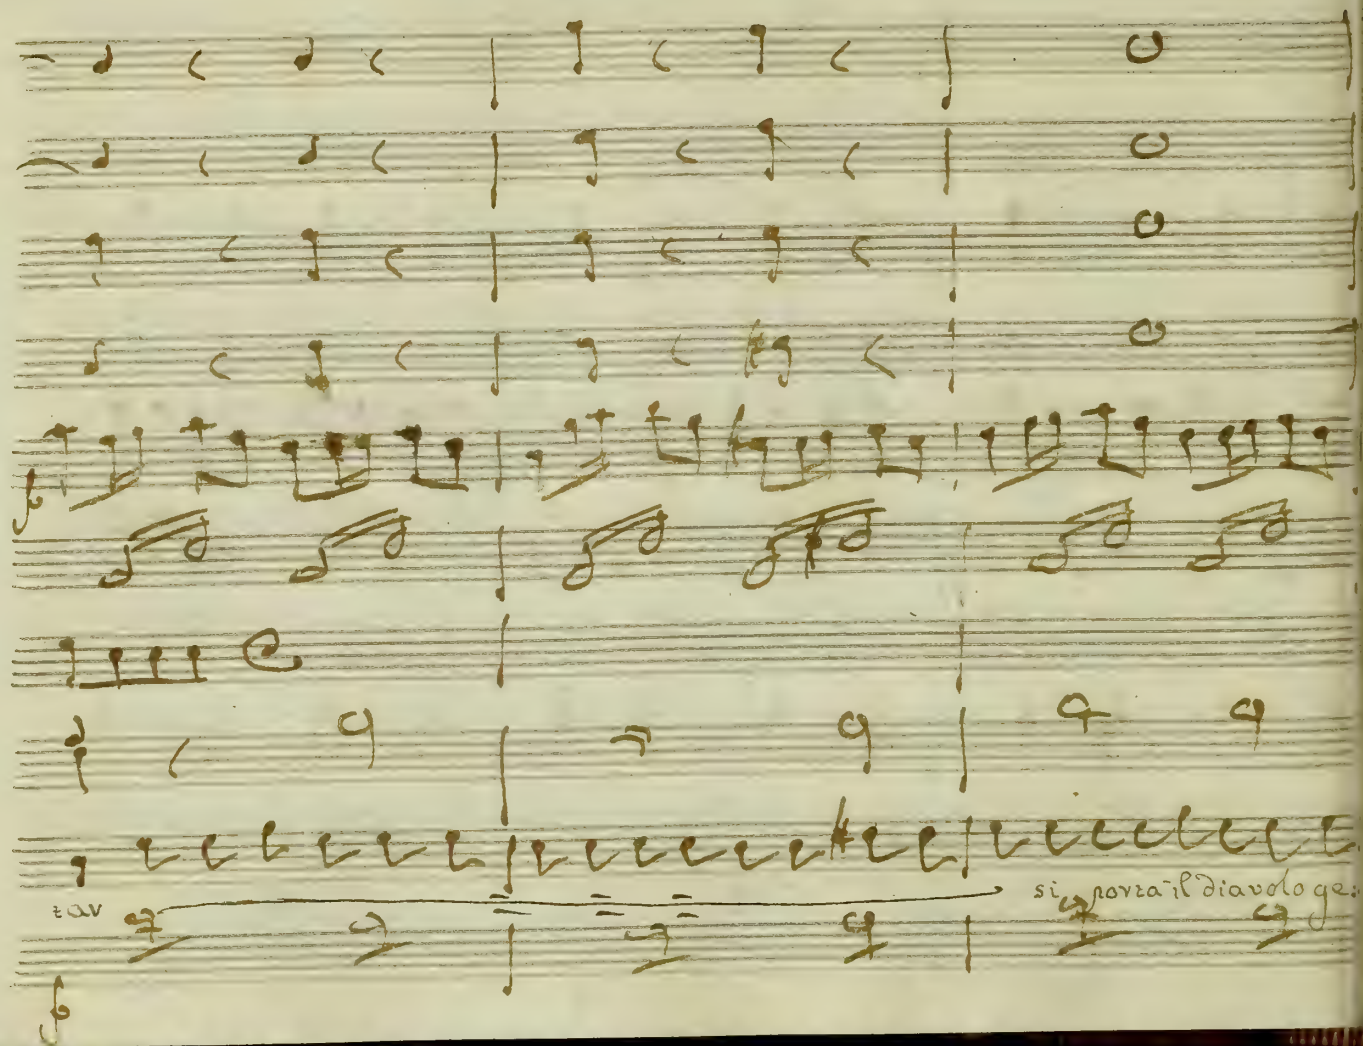 tar si porta il diavolo ge: